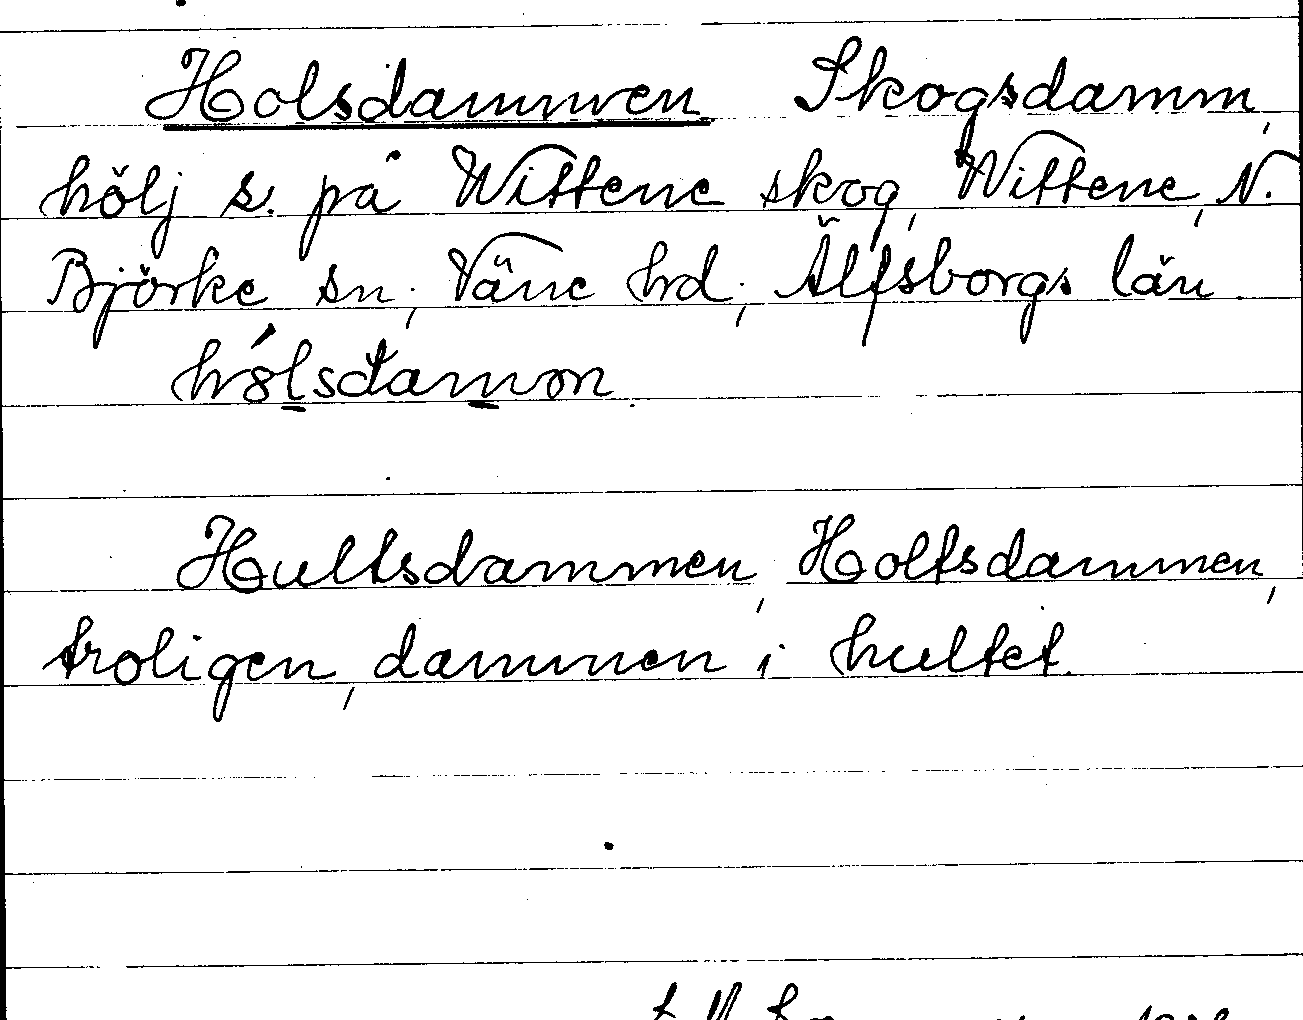 Holsdammen Skogsdamm,
hölj s. på Wittene skog, Wittene, N.
Björke sn; Väne hd; Älfsborgs län.
Hultsdammen, Holtsdammen,
troligen, dammen i hultet.